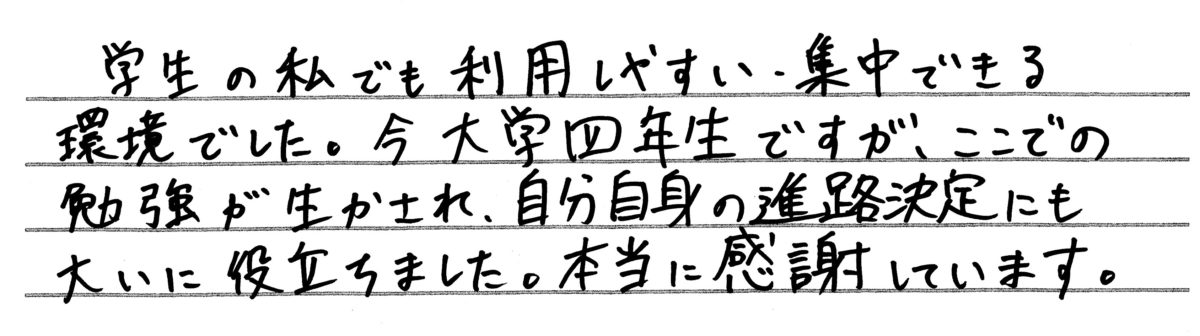 学生の私でも利用しやすい・集中できる
環境でした。今大学四年生ですが、ここでの
勉強が生かされ、自分自身の進路決定にも
大いに役立ちました。本当に感謝しています。